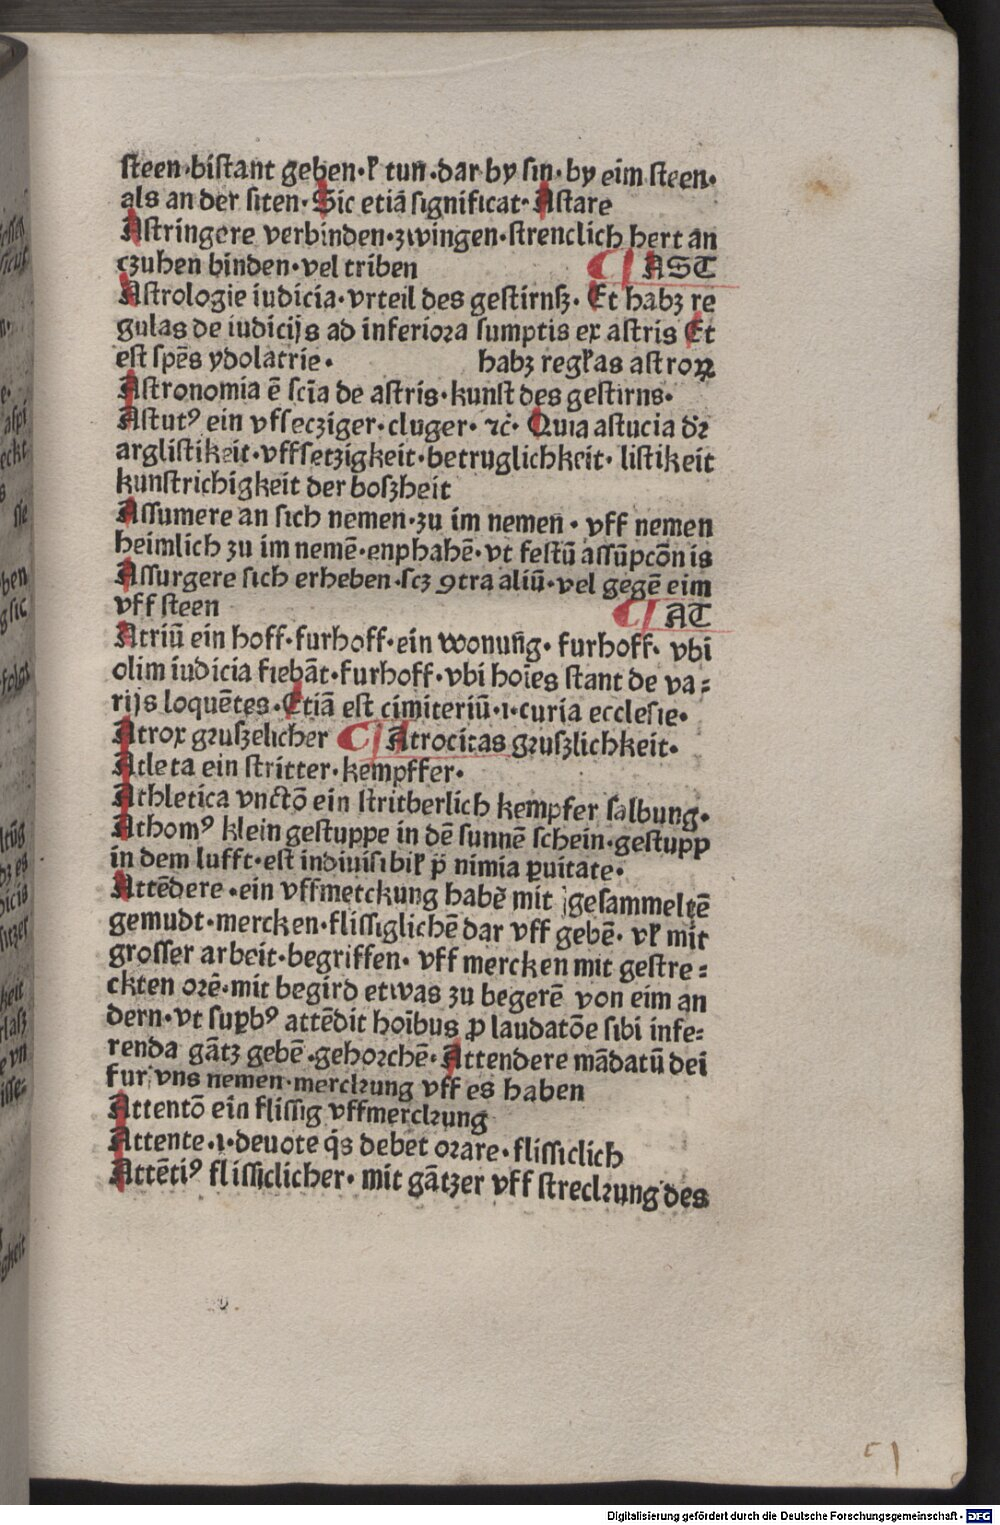 steen·bistant geben·ł tun·dar by sin·by eim steen·
als an der siten·Sic etiā significat·Astare
Astringere verbinden·zwingen·strenclich hert an
czuhen binden·vel triben ¶ AST
Astrologie iudicia·vrteil des gestirnß·Et habꝫ re
gulas de iudicijs ad inferiora sumptis ex astris Et
est spēs ydolatrie· habꝫ regłas astroꝝ
Astronomia ē scīa de astris·kunst des gestirns·
Astutꝰ ein vffsecziger·cluger·⁊č·Quia astucia dr̄
arglistikeit·vffsetzigkeit·betruglichkeit·listikeit
kunstrichigkeit der boßheit
Assumere an sich nemen·zu im nemen·vff nemen
heimlich zu im nemē·enphahē·vt festū assūpcōnis
Assurgere sich erheben·scꝫ ꝯtra aliū·vel gegē eim
vff steen ¶ AT
Atriū ein hoff·furhoff·ein wonung·furhoff·vbi
olim iudicia fiebāt·furhoff·vbi hoīes stant de va⸗
rijs loquētes·Etiā est cimiteriū·i·curia ecclesie·
Atrox grußelicher ¶ Atrocitas grußlichkeit·
Atleta ein stritter·kempffer·
Athletica vnctō ein stritberlich kempfer salbung·
Athomꝰ klein gestuppe in dē sunnē schein·gestupp
in dem lufft·est indiuisibił p̄ nimia ꝑuitate·
Attēdere·ein vffmerckung habē mit gesammeltē
gemudt·mercken·flissiglichē dar vff gebē·vł mit
grosser arbeit·begriffen·vff mercken mit gestre⸗
ckten orē·mit begird etwas zu begerē von eim an
dern·vt suꝑbꝰ attēdit hoībus ꝓ laudatōe sibi infe⸗
renda gātz gebē·gehorchē·Attendere mādatū dei
fur vns nemen·merckung vff es haben
Attentō ein flissig vffmerckung
Attente·i·deuote q̄s debet orare·flissiclich
Attētiꝰ flissiclicher·mit gātzer vff streckung des
51
Digitalisierung gefördert durch die Deutsche Forschungsgemeinschaft - DFG